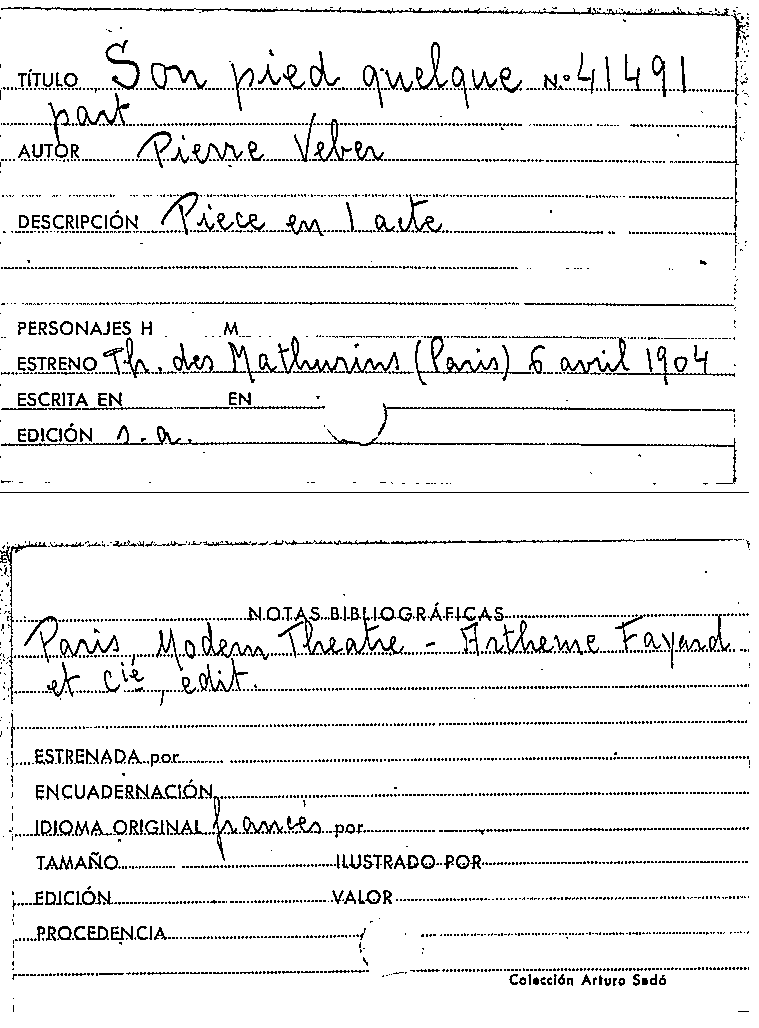 TÍTULO Son pied quelque N.º 41491
part
AUTOR Pierre Veber
DESCRIPCIÓN Piece en 1 acte
PERSONAJES H M
ESTRENO Th. des Mathurins (Paris) 6 avril 1904
ESCRITA EN EN
EDICIÓN s.a.
NOTAS BIBLIOGRÁFICAS
Paris, Modern Theatre - Artheme Fayard
et Cie, edit.
ESTRENADA por
ENCUADERNACIÓN
IDIOMA ORIGINAL francés por
TAMAÑO ILUSTRADO POR
EDICIÓN VALOR
PROCEDENCIA
Colección Arturo Sedó